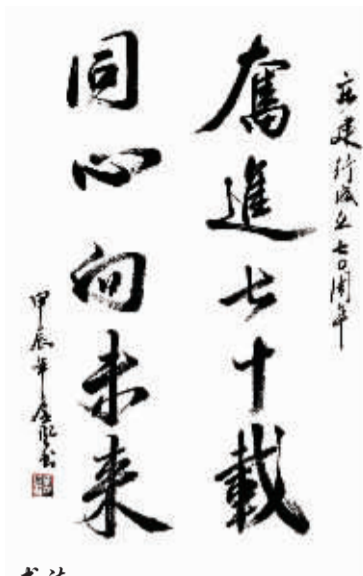 建行成立七〇周年
奮進七十載
同心向未来
甲辰年
书法